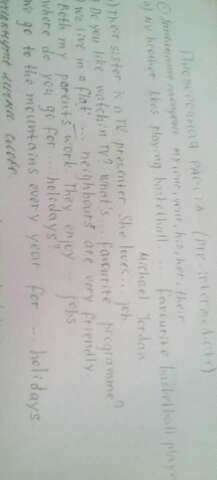 Письменная работа (pre-intermediate)
my, our, your, his, her, their
a) My brother likes playing basketball ... favourite basketball player
Michael Jordan
Their sister is a TV presenter She loves ... job
Do you like watching TV? What's ... favourite programme?
We live in a flat ... neighbours are very friendly
Both my parents work. They enjoy ... jobs
Where do you go for ... holidays?
We go to the mountains every year for ... holidays